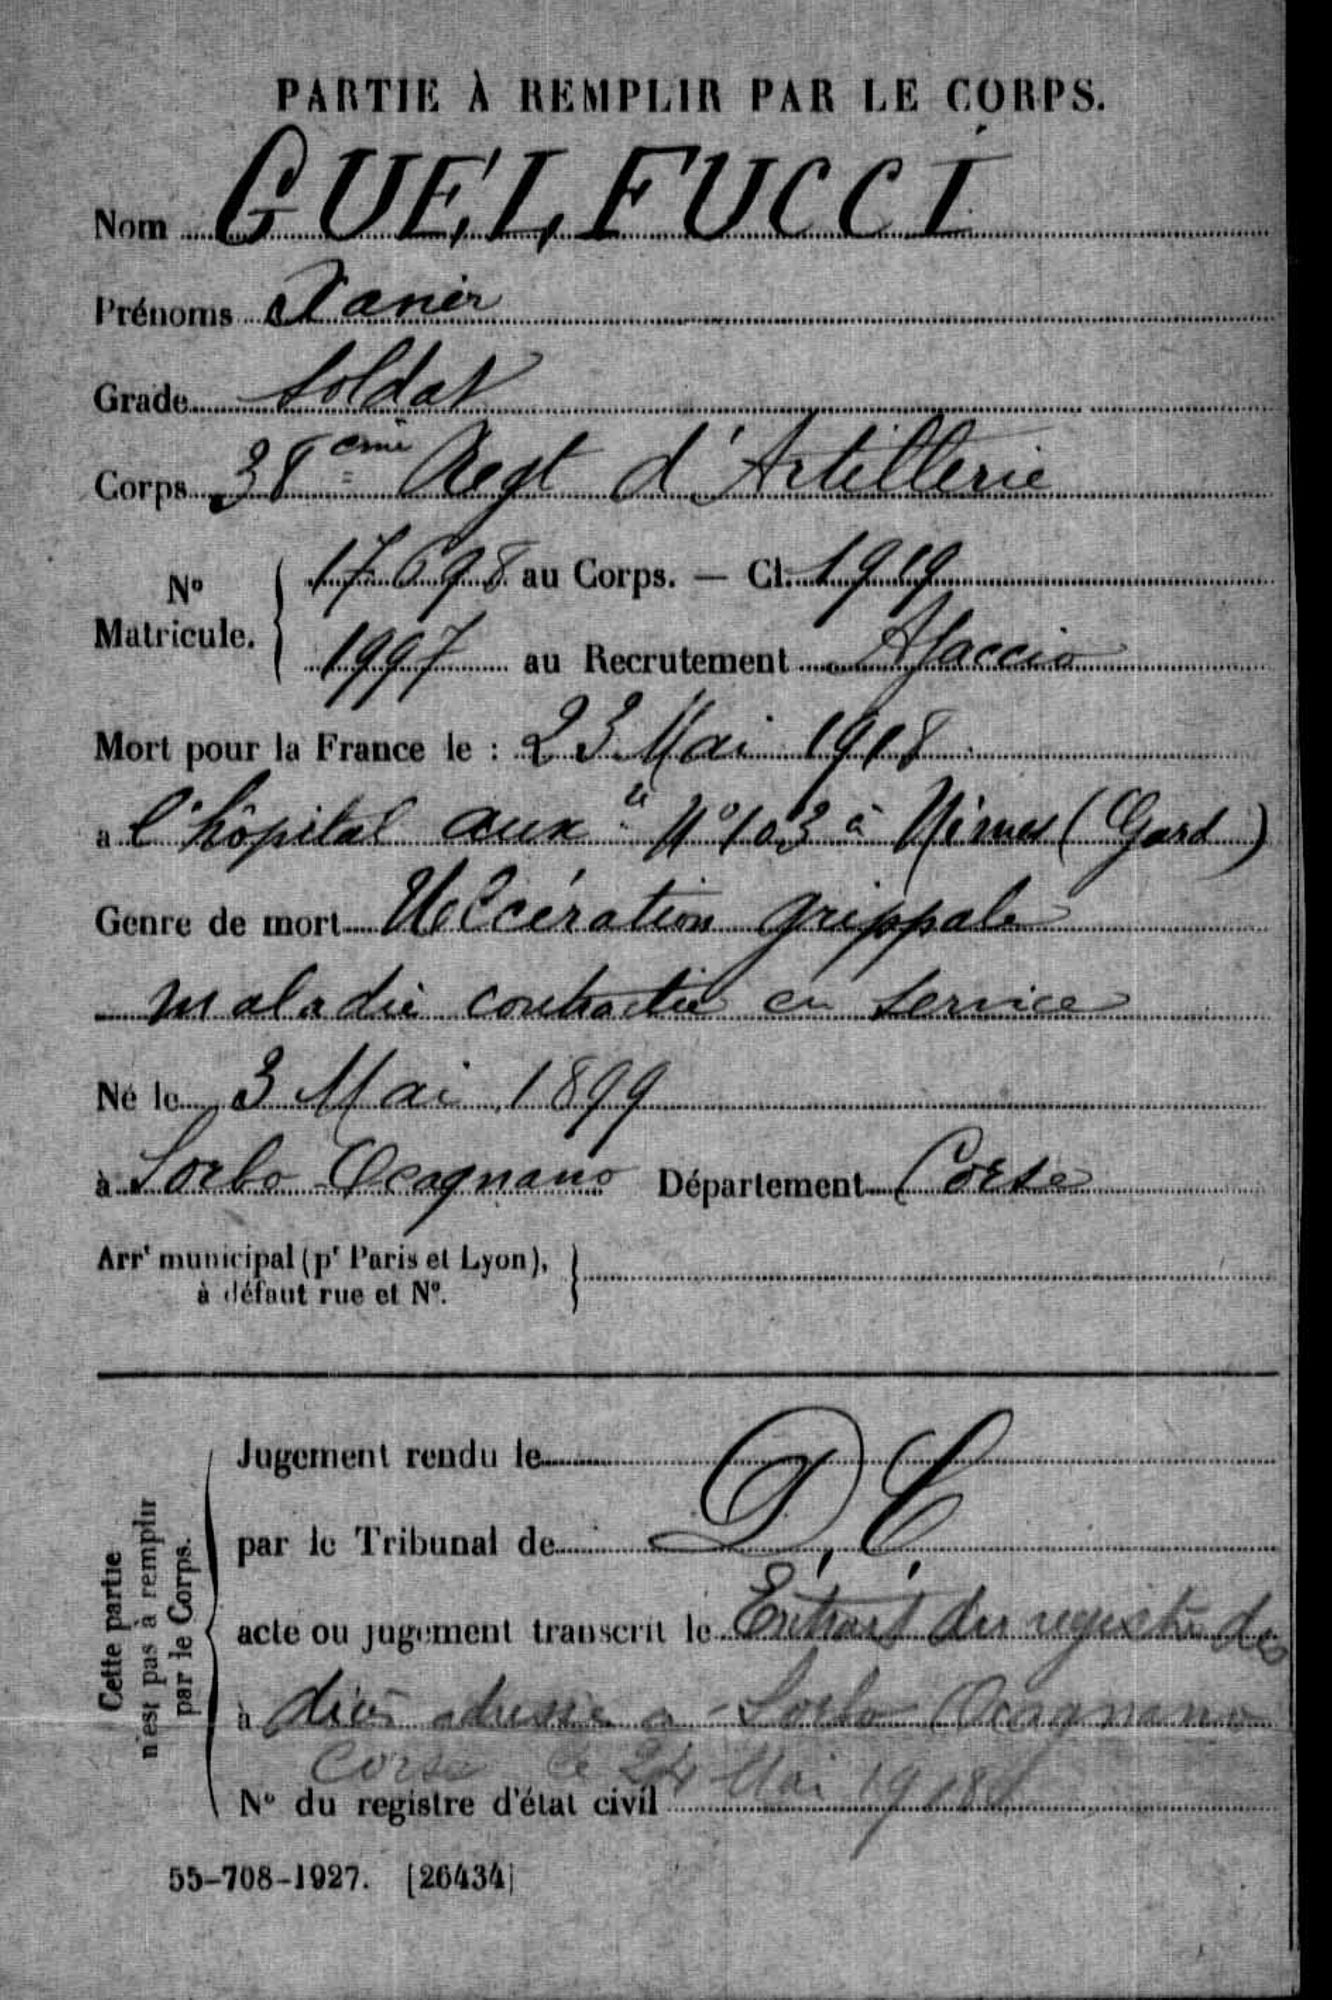 PARTIE À REMPLIR PAR LE CORPS.
Nom GUELFUCCI
Prénoms Xavier
Grade Soldat
Corps 38eme Regt d'Artillerie
No Matricule. 17698 au Corps. — Cl. 1919
1997 au Recrutement Ajaccio
Mort pour la France le : 23 Mai 1918
a l'hôpital auxre No 103 à Nimes (Gard)
Genre de mort Ulcération grippale
maladie contractée en service
Né le 3 Mai 1899
à Sorbo Ocagnano Département Corse
Arrt municipal (pr Paris et Lyon),
à défaut rue et No.
Cette partie
n'est pas à remplir
par le Corps.
Jugement rendu le
par le Tribunal de D.C.
acte ou jugement transcrit le Extrait du registre des
à décès adressé a Sorbo Ocagnano
Corse le 24 Mai 1918
No du registre d'état civil
55-708-1927. [26434]